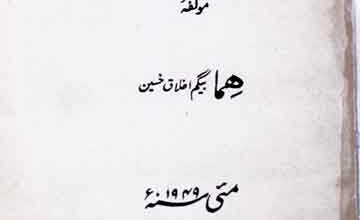 مولفہ
ھما بیگم اخلاق حسین
مئی سنہ ۱۹۴۹ء